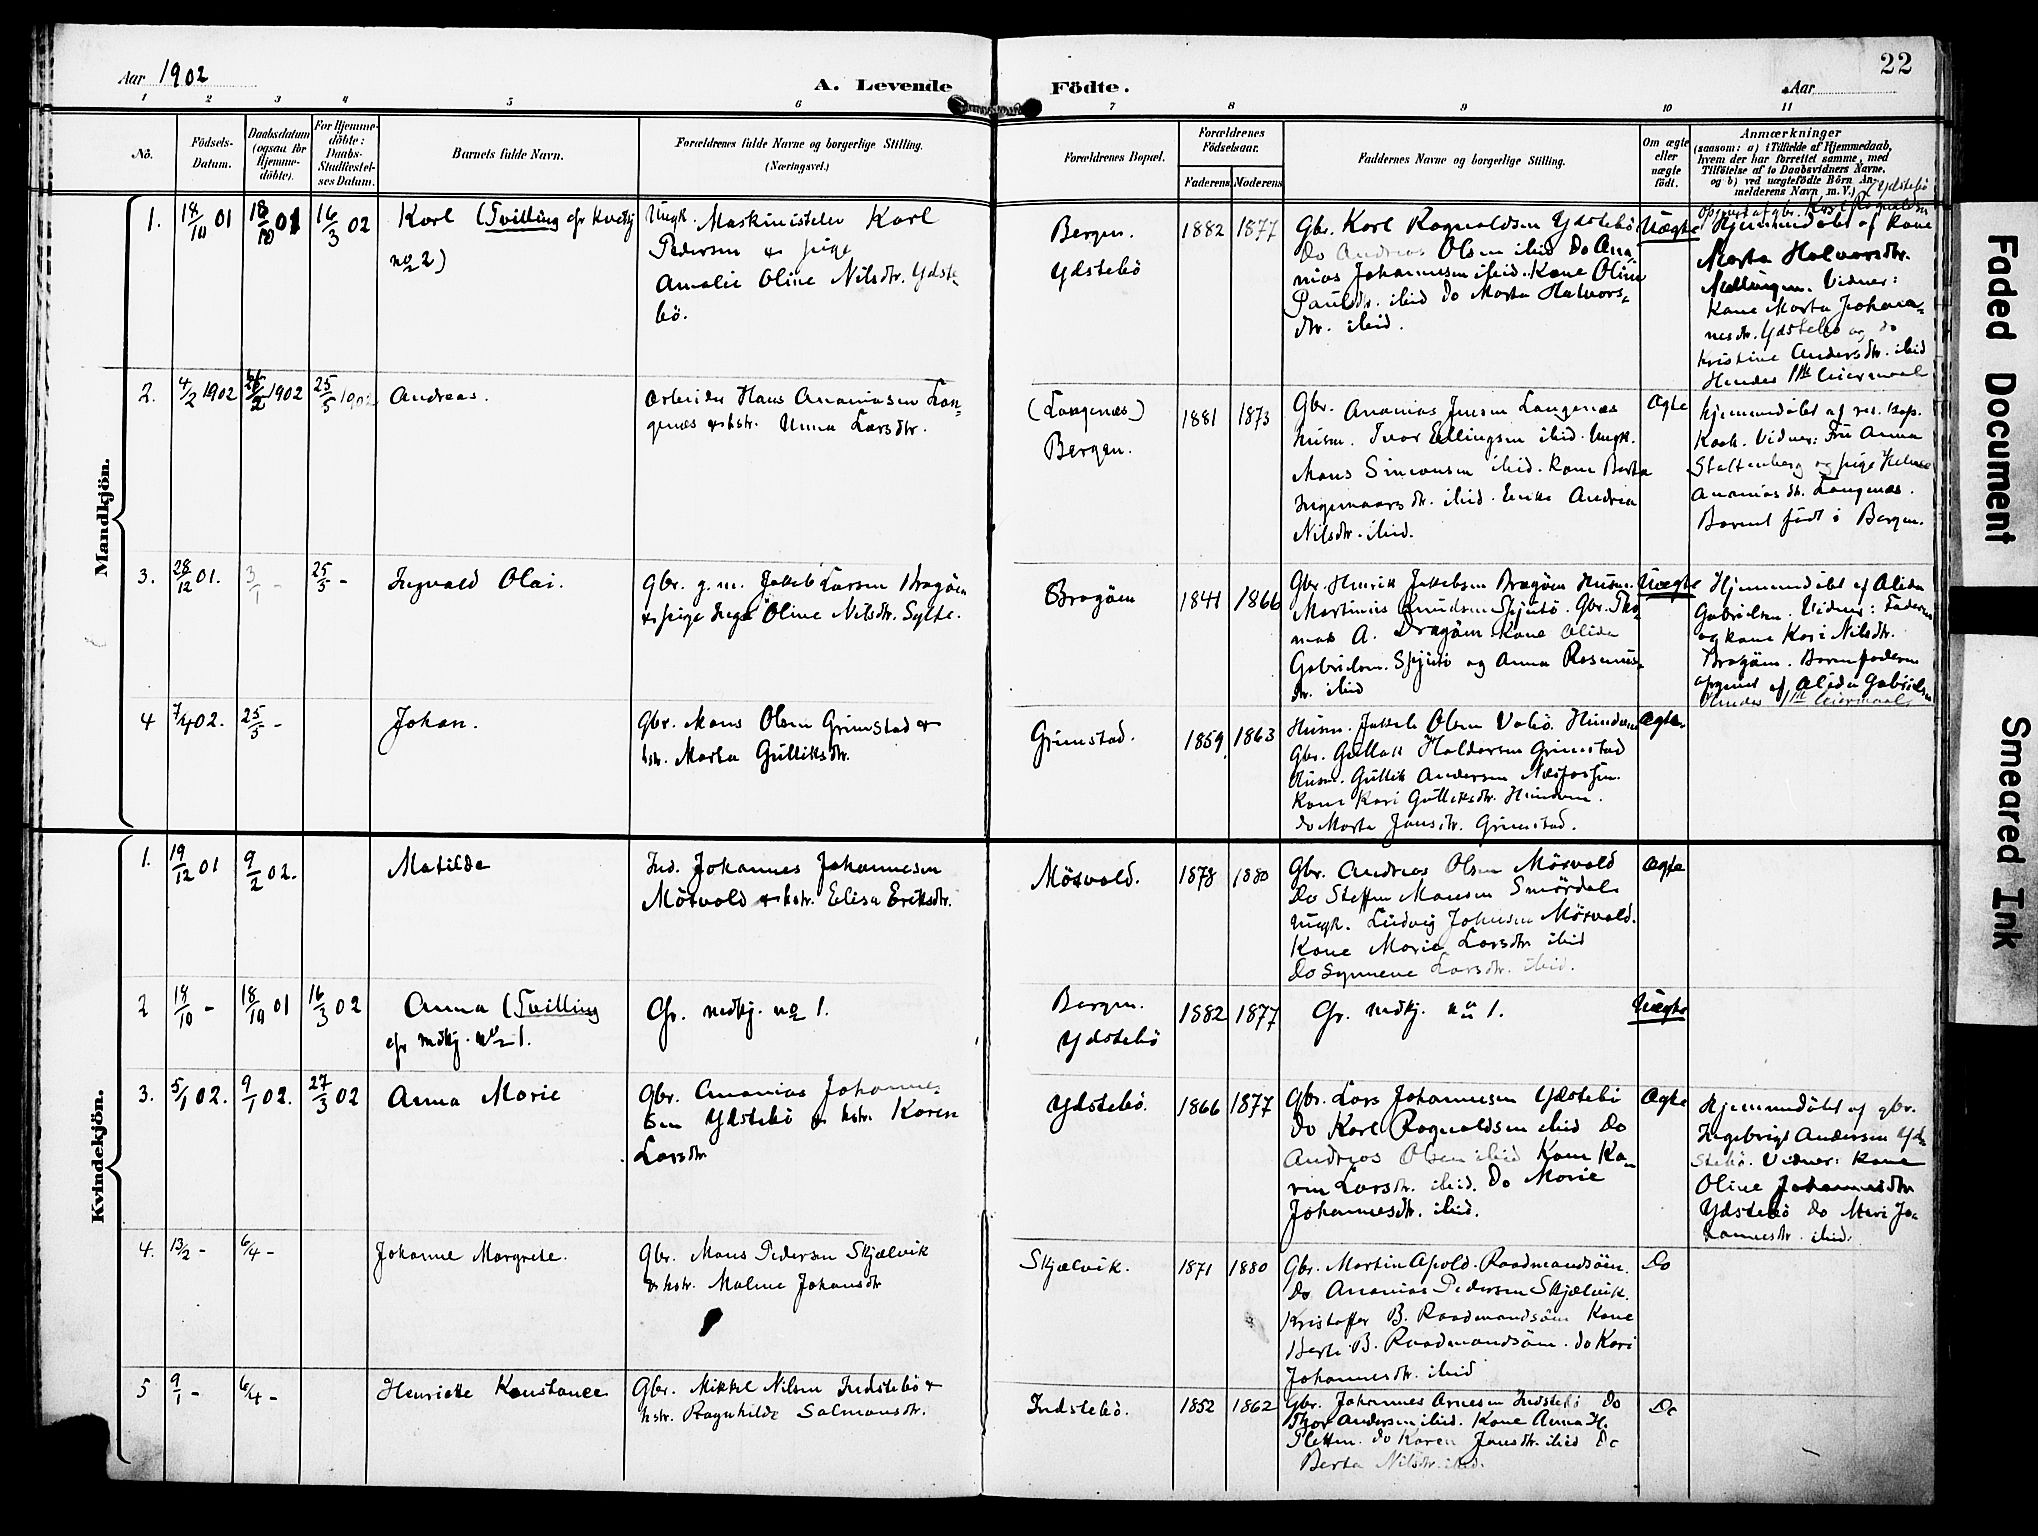 22
Aar 1902
A. Levende Födte.
Aar
1 2 3 4 5 6 7 8 9 10 11
No.
Födsels-
Datum.
Daabsdatum
(ogsaa for
Hjemme-
döbte).
For Hjemme-
döbte:
Daabs-
Stadfæstel-
ses Datum.
Barnets fulde Navn.
Forældrenes fulde Navne og borgerlige Stilling.
(Næringsvei.)
Forældrenes Bopæl.
Forældrenes
Födselsaar.
Faderens Moderens
Faddernes Navne og borgerlige Stilling.
Om ægte
eller
uægte
födt.
Anmærkninger
(saasom: a) i Tilfælde af Hjemmedaab,
hvem der har forrettet samme, med
Tilföielse af to Daabsvidners Navne.
og b) ved uægtefödte Börn An-
melderens Navn m. V.)
Mandkjön.
1. 18/10 01 18/10 01 16/3 02
Karl (Tvilling cfr kvkj
no 2)
Ungk. Maskinistelev Karl
Pedersen & pige
Amalie Oline Nilsdtr. Ydste-
bö.
Bergen.
Ydstebö
1882 1877
Gbr. Karl Ragnvaldsen Ydstebö
Do Andreas Olsen ibid Do Ana-
nias Johannesen ibid. Kone Oline
Paulsdtr. ibid Do Marta Halvors-
dtr. ibid.
Uægte
Opgivet af gbr. Karl Ragnvaldsen
Ydstebö
Hjemmedöbt af kone
Marta Halvorsdtr.
Vidner:
Kone Marta Johan-
nesdtr. Ydstebö og do
Kristine Andersdtr. ibid
Hendes 1ste leiermaal
2. 4/2 1902 26/2 1902 25/5 1902
Andreas.
Arbeider Hans Ananiasen Lan-
genæs & hstr. Anna Larsdtr.
(Langenæs)
Bergen.
1881 1873
Gbr. Ananias Jensen Langenæs
Husm. Ivar Ellingsen ibid. Ungk.
Mons Simonsen ibid. Kone Berta
Ingemarsdtr. ibid. Enke Andrea
Nilsdtr. ibid.
Ægte
Hjemmedöbt af res. kap.
Koch. Vidner: Fru Anna
Stoltenberg og pige Helene
Ananiasdtr. Langenæs.
Barnet födt i Bergen.
3. 28/12 01. 3/1 - 25/5 -
Ingvald Olai.
Gbr. g.m. Jakob Larsen Dragöen
& pige Inga Oline Nilsdtr. Sylte.
Dragöen
1841 1866
Gbr. Henrik Jakobsen Dragöen Husm.
Martinus Knudsen Spjutö. Gbr. Tho-
mas A. Dragöen Kone Alida
Gabrielsen. Spjutö og Anna Rasmus-
dtr. ibid
Uægte
Hjemmedöbt af Alida
Gabrielsen. Vidner: Faderen
og kone Kari Nilsdtr.
Dragöen. Barnefaderen
opgivet af Alida Gabrielsen
Hendes 1ste leiermaal
4 7/4 02. 25/5 -
Johan.
Gbr. Mons Olsen Grimstad &
hstr. Marta Gulliksdtr.
Grimstad.
1859 1863
Husm. Jakob Olsen Valö. Hundven
Gbr. Gullak Haldorsen Grimstad
Husm. Gullik Andersen Næsfossen.
Kone Kari Gulliksdtr. Hundven.
do Marta Jansdtr. Grimstad.
Ægte.
Kvindekjön.
1. 19/12 01 9/2 02.
Matilde
Ind. Johannes Johannesen
Mösvold & hstr. Elisa Eriksdtr.
Mösvold.
1878 1880
Gbr. Andreas Olsen Mösvold
Do Steffen Monsen Smördal
Ungk. Ludvig Johnsen Mösvold.
Kone Marie Larsdtr ibid
Do Synneve Larsdtr. ibid.
Ægte
2 18/10 - 18/10 01 16/3 02
Anna (Tvilling
cfr mdkj. no 1.
Cfr. mdkj. no 1.
Bergen.
Ydstebö
1882 1877
Cfr. mdkj. no 1.
Uægte
3. 5/1 02. 9/1 02. 27/3 02
Anna Marie
Gbr. Ananias Johanne-
sen Ydstebö & hstr. Karen
Larsdtr
Ydstebö.
1866 1877
Gbr. Lars Johannesen Ydstebö
Do Karl Ragnvaldsen ibid Do
Andreas Olsen ibid Kone Ka-
ren Larsdtr. ibid. Do Marie
Johannesdtr. ibid.
Ægte
Hjemmedöbt af gbr.
Ingebrigt Andersen Yd-
stebö. Vidner: Kone
Oline Johannesdtr
Ydstebö Do Mari Jo-
hannesdtr. ibid.
4. 13/2 - 6/4 -
Johanne Margrete.
Gbr. Mons Pedersen Skjælvik
& hstr. Malene Johansdtr
Skjælvik.
1871 1880
Gbr. Martin Apold. Raadmandsöen.
Do Ananias Pedersen Skjælvik.
Kristoffer B. Raadmandsöen Kone
Berte B. Raadmandsöen. do Kari
Johannesdtr. ibid
Do
5 9/1 - 6/4 -
Henriette Konstance
Gbr. Mikkel Nilsen Indstebö &
hstr. Ragnhilde Salmonsdtr.
Indstebö.
1852 1862
Gbr. Johannes Arnesen Indstebö Do
Thor Andersen ibid. Kone Anna H.
Pletten. do Karen Jonsdtr. ibid Do
Berta Nilsdtr. ibid.
Do
Faded Document
Smeared Ink